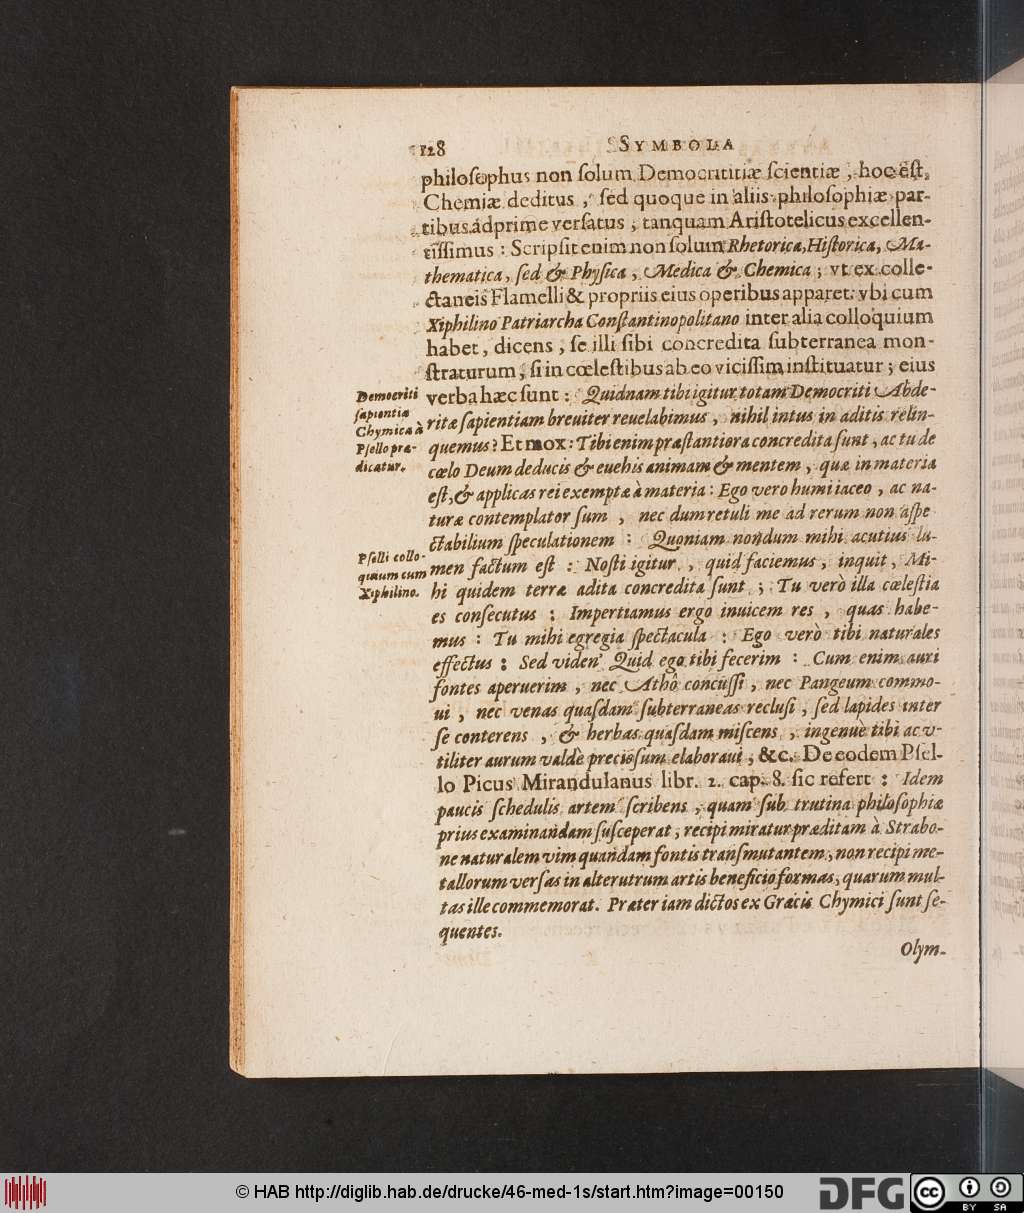 128 SYMBOLA
philosophus non solum Democrititiæ scientiæ, hoc est,
Chemiæ deditus, sed quoque in aliis philosophiæ par-
tibus adprime versatus, tanquam Aristotelicus excellen-
tissimus: Scripsit enim non solum Rhetorica, Historica, Ma-
thematica, sed & Physica, Medica & Chemica; vt ex colle-
ctaneis Flamelli & propriis eius operibus apparet: vbi cum
Xiphilino Patriarcha Constantinopolitano inter alia colloquium
habet, dicens, se illi sibi concredita subterranea mon-
straturum, si in cœlestibus ab eo vicissim instituatur; eius
verba hæc sunt: Quidnam tibi igitur totam Democriti Abde-
ritæ sapientiam breuiter reuelabimus, nihil intus in aditis relin-
quemus? Et mox: Tibi enim præstantiora concredita sunt, ac tu de
cœlo Deum deducis & euehis animam & mentem, quæ in materia
est, & applicas rei exemptæ à materia: Ego vero humi iaceo, ac na-
turæ contemplator sum, nec dum retuli me ad rerum non aspe
ctabilium speculationem: Quoniam nondum mihi acutius lu-
men factum est: Nosti igitur, quid faciemus, inquit, Mi-
hi quidem terræ adita concredita sunt; Tu verò illa cœlestia
es consecutus: Impertiamus ergo inuicem res, quas habe-
mus: Tu mihi egregia spectacula: Ego verò tibi naturales
effectus: Sed viden' Quid ego tibi fecerim: Cum enim auri
fontes aperuerim, nec Athô concussi, nec Pangeum commo-
ui, nec venas quasdam subterraneas reclusi, sed lapides inter
se conterens, & herbas quasdam miscens, ingenuè tibi ac v-
tiliter aurum valdè preciosum elaboraui, &c. De eodem Psel-
lo Picus Mirandulanus libr. 2. cap. 8. sic refert: Idem
paucis schedulis artem scribens, quam sub trutina philosophiæ
prius examinandam susceperat, recipi miratur præditam à Strabo-
ne naturalem vim quandam fontis transmutantem, non recipi me-
tallorum versas in alterutrum artis beneficio formas, quarum mul-
tas ille commemorat. Præter iam dictos ex Græcis Chymici sunt se-
quentes.
Olym-
Democriti
sapientia
Chymica à
Psello præ-
dicatur.
Pselli collo-
quium cum
Xiphilino.
© HAB http://diglib.hab.de/drucke/46-med-1s/start.htm?image=00150
DFG
cc BY SA